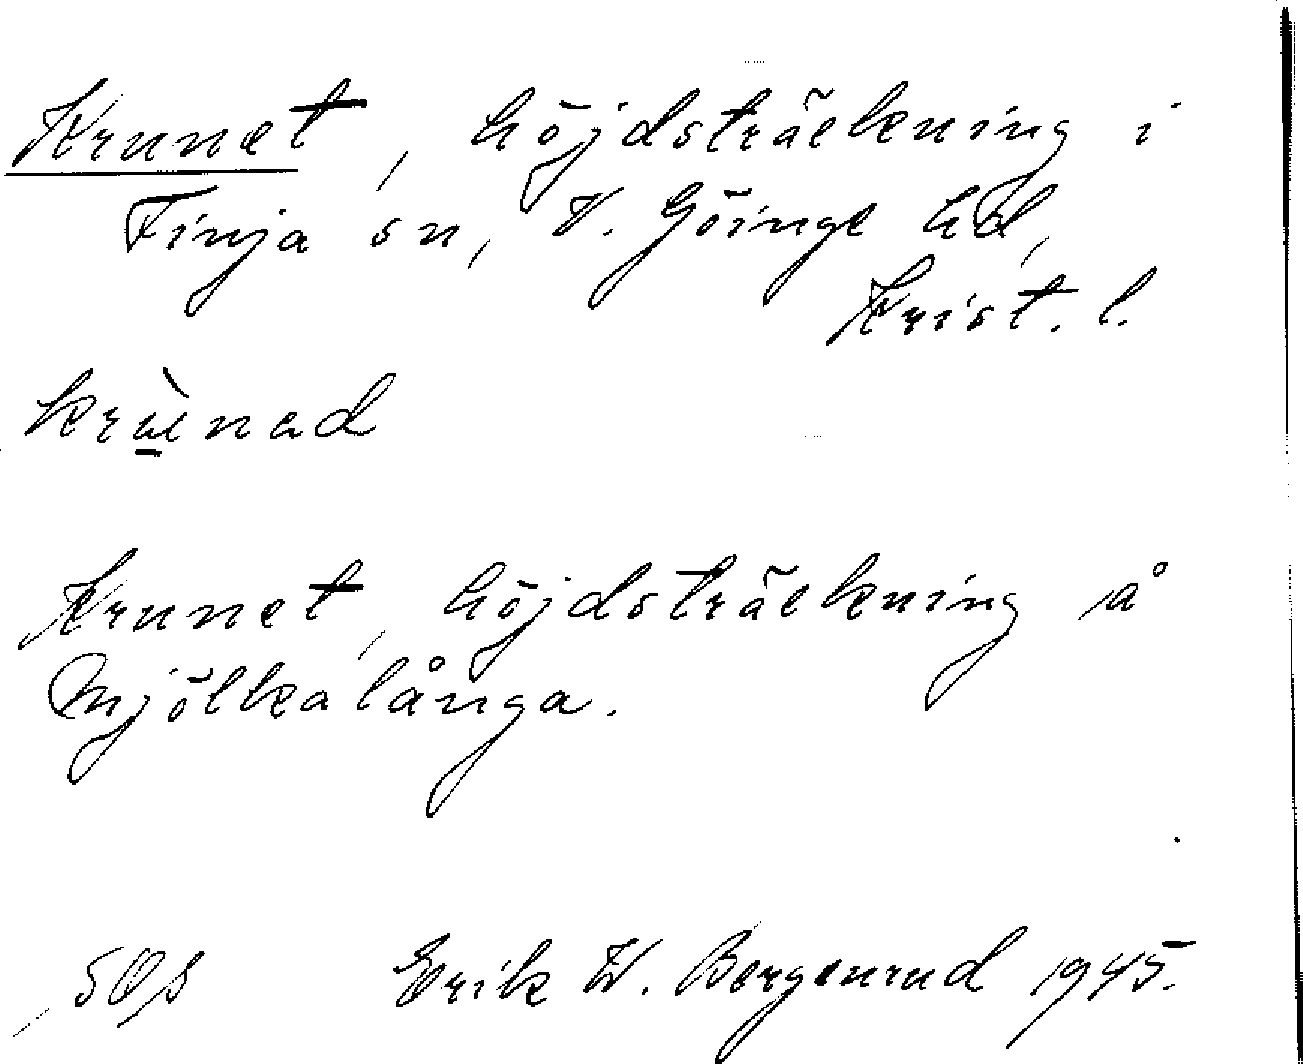 Krunet, höjdsträckning i
Finja sn, V. Göinge hd,
Krist. l.
Krunet, höjdsträckning å
Mjölkalånga.
Erik W. Bergenrud 1945.